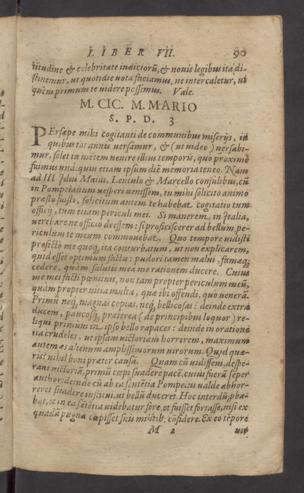 LIBER VII. 90
titudine & celebritate iudiciorũ, & nouis legibus ita di-
stinemur, ut quotidie uota faciamus, ne intercaletur, ut
quàm primum te uidere possimus. Vale.
M. CIC. M. MARIO
S. P. D. 3
PErsæpe mihi cogitanti de communibus miserijs, in
quibus tot annis uersamur, & (ut uideo) uersabi-
mur, solet in mentem uenire illius temporis, quo proximè
fuimus unà: quin etiam ipsum diẽ memoria teneo. Nam
ad III. Idus Maias, Lentulo & Marcello consulibus, cũ
in Pompeianum uesperi uenissem, tu mihi solicito animo
præsto fuisti, solicitum autem te habebat cogitatio tum
officij, tum etiam periculi mei. Si manerem in Italia,
uerebare ne officio deessem: si proficiscerer ad bellum, pe-
riculum te meum commouebat. Quo tempore uidisti
profectò me quoq; ita conturbatum, ut non explicarem,
quid esset optimum factu: pudori tamen malui, famæq;
cedere, quàm salutis meæ rationem ducere. Cuius
me mei facti pœnituit, non tam propter periculum meũ,
quàm propter uitia multa, quæ ibi offendi, quo ueneră.
Primũ neq; magnas copias, neq; bellicosas: deinde extra
ducem, paucosq; præterea (de principibus loquor) re-
liqui primum in ipso bello rapaces: deinde in oratione
ita crudeles, ut ipsam uictoriam horrerem, maximum
autem æs alienum amplissimorum uirorum. Quid quæ-
ris? nihil boni præter causã. Quæ cũ uidissem, despe-
rans uictoriã, primũ cœpi suadere pacẽ, cuius fuerã semper
author: deinde cũ ab ea sentẽtia Pompeius ualde abhor-
reret suadere institui, ut bellũ duceret. Hoc interdũ proba-
bat, et in ea sẽtẽtia uidebatur fore, et fuisset fortasse, nisi ex
quadã pugna cœpisset suis militib. cõfidere. Ex eo tẽpore
M 2 uir